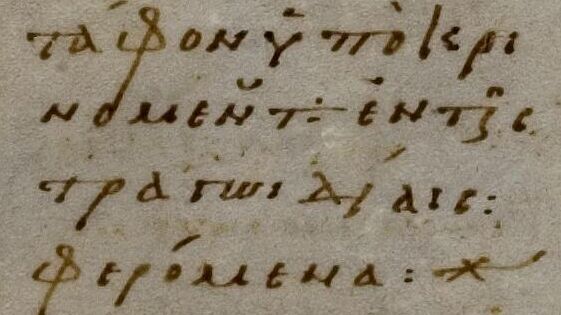 τάφον ὑποκρι
νομεν τ: ἐν τῆς
τραγωιδίαις:
φερόμενα: